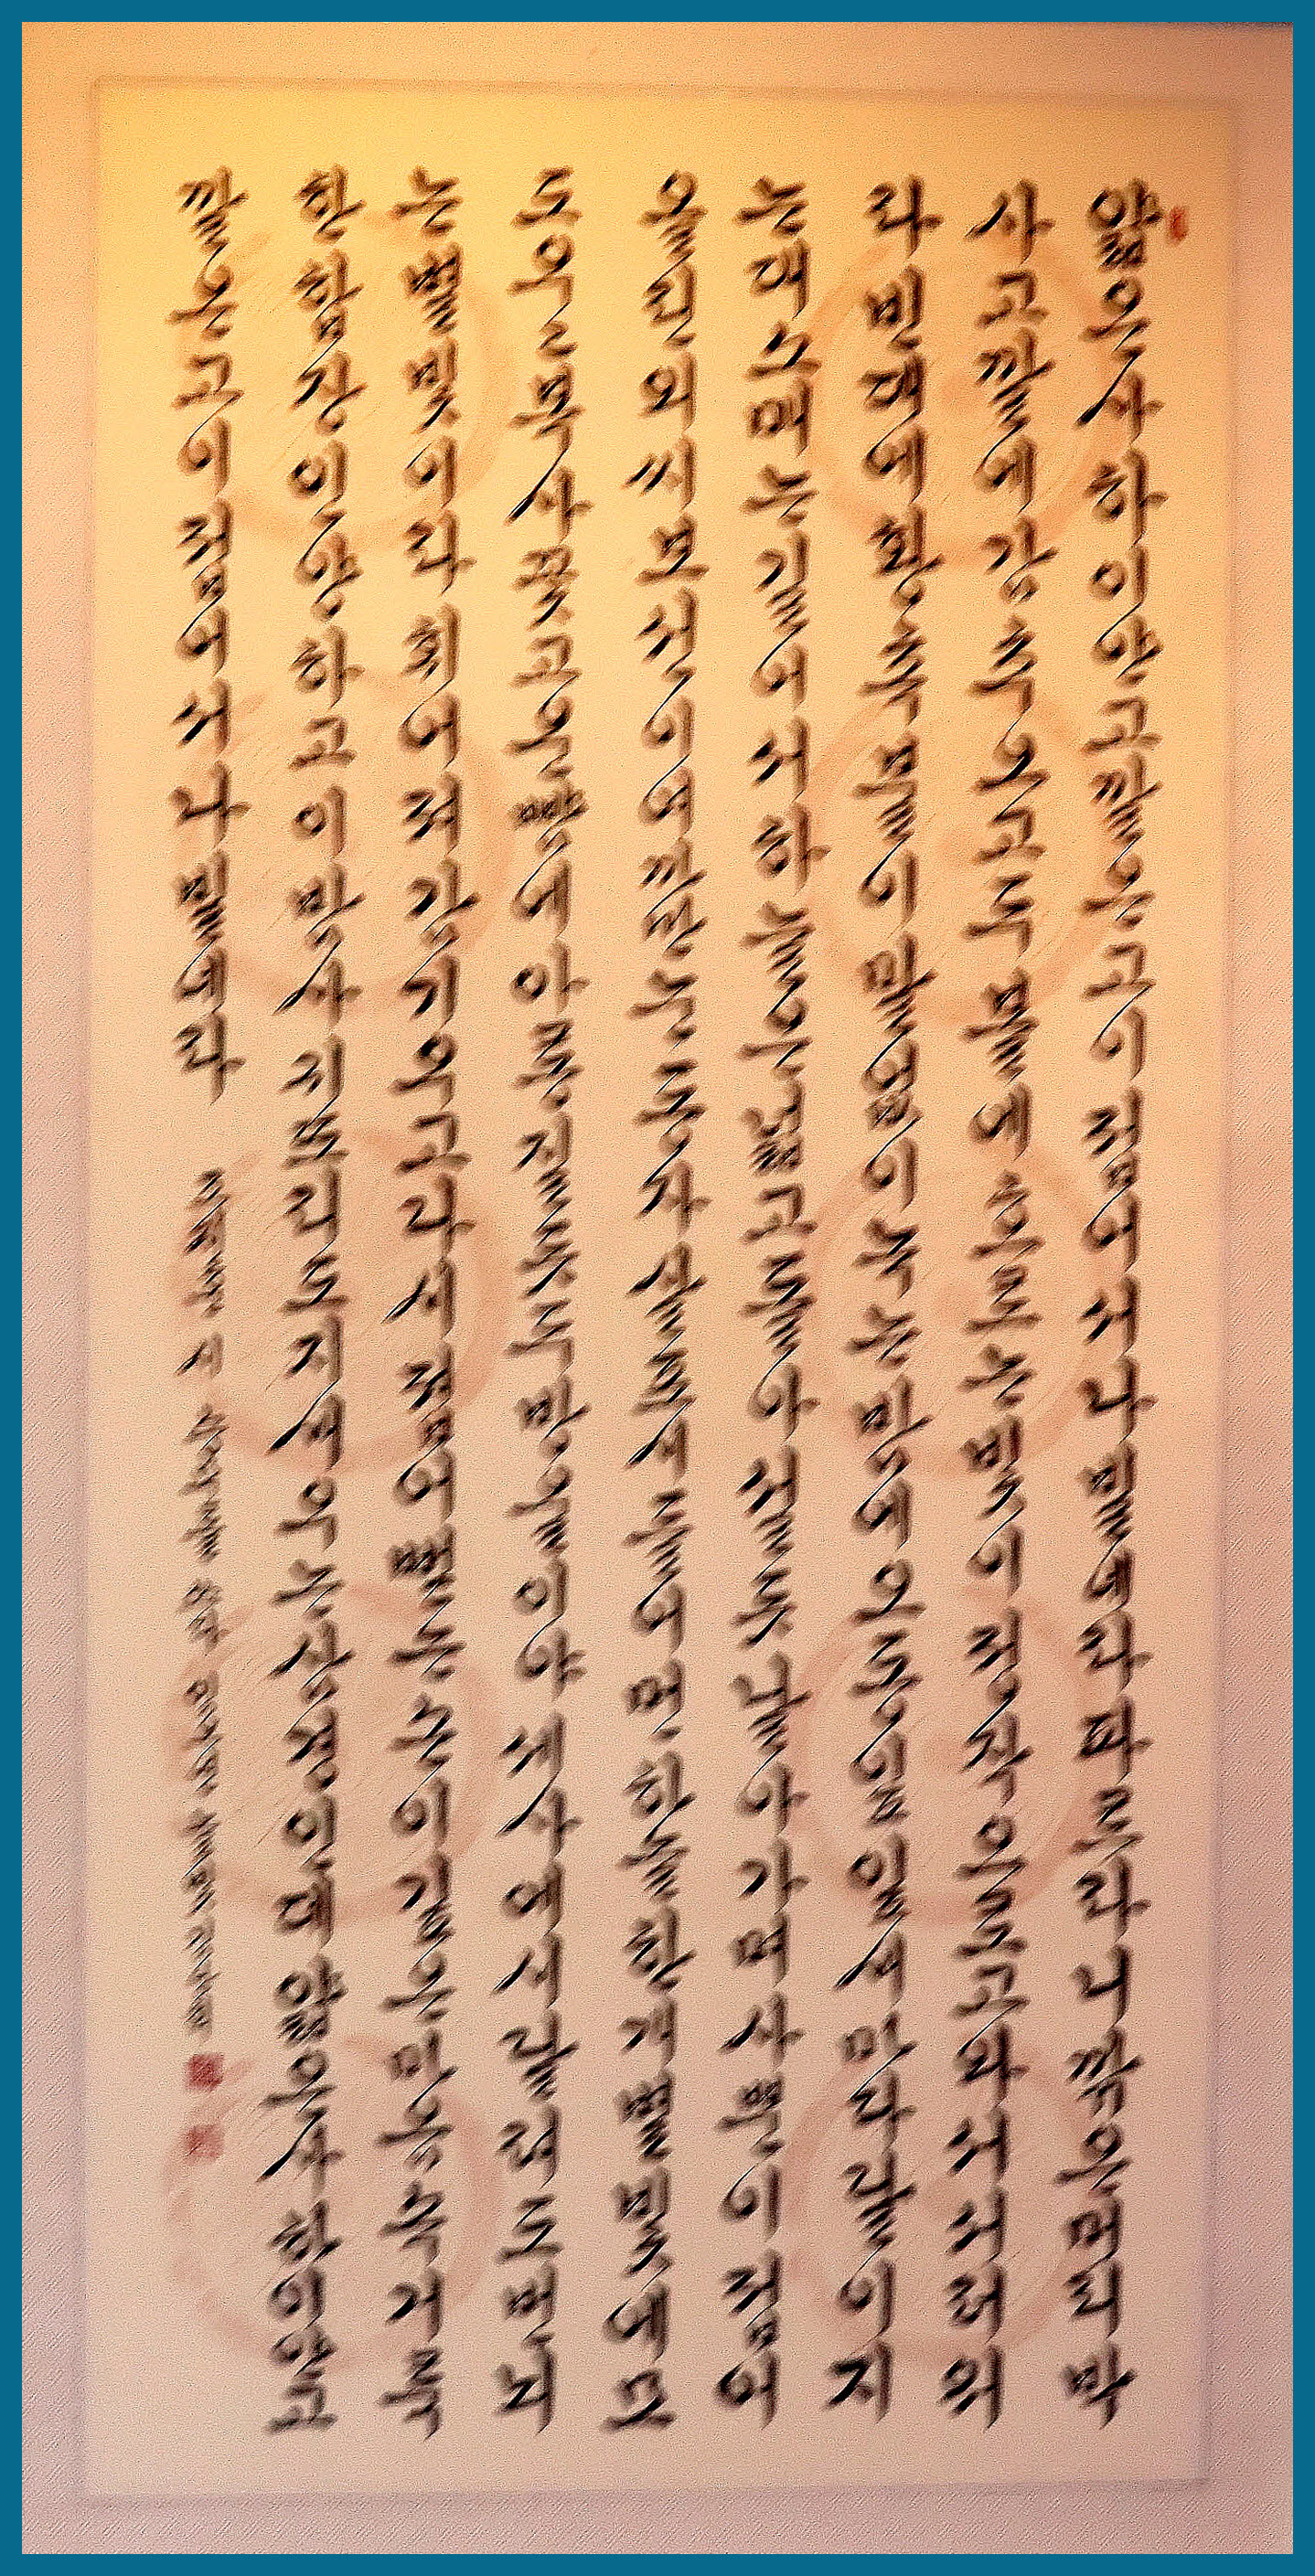 얇은사하이얀고깔은고이접어서나빌네라파르라니깎은머리박
사고깔에감추오고두볼에흐르는빛이정작으로고와서서러워
라빈대에황촉불이말없이녹는밤에오동잎잎새마다달이지
는데소매는길어서하늘은넓고돌아설듯날아가며사뿐이접어
올린외씨보선이여까만눈동자살포시들어먼하늘한개별빛에모
도운복사꽃고운뺨에아롱질듯두방울이야세사에시달려도번뇌
는별빛이라휘어져감기우고다시접어뻗는손이깊은마음속거룩
한합장인양하고이밤사지또리도지새우는삼경인데얇은사하이얀고
깔은고이접어서나빌네라 조지훈 시 승무를 쓰다